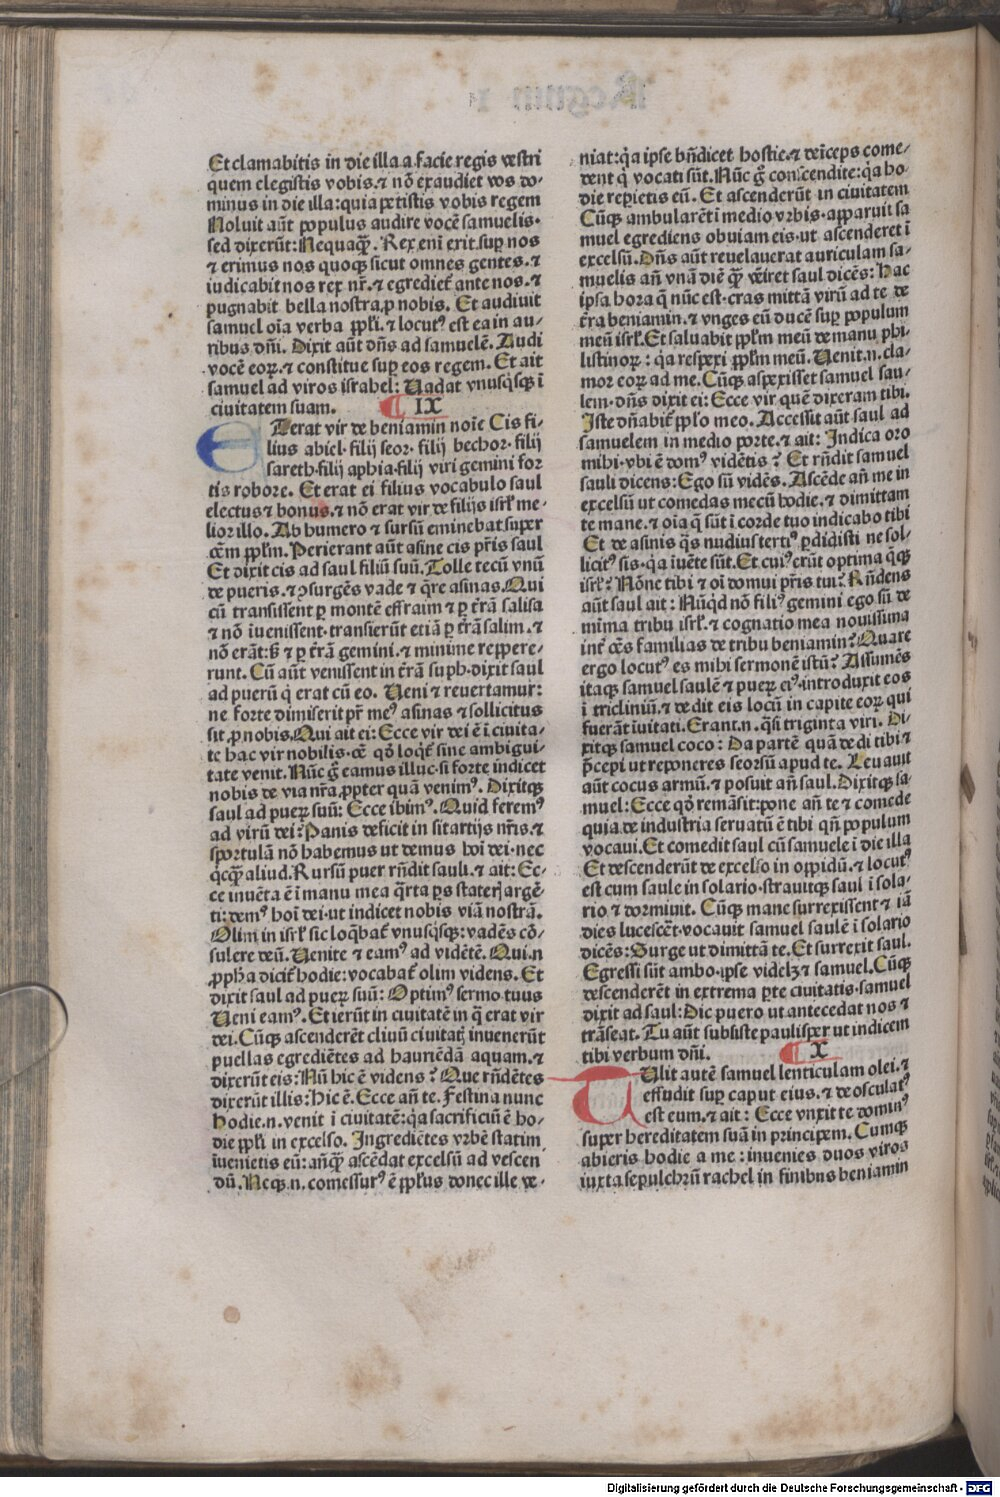 Et clamabitis in die illa a facie regis vestri
quem elegistis vobis.⁊ nō exaudiet vos do-
minus in die illa: quia petistis vobis regem
Noluit aūt populus audire vocē samuelis.
sed dixerūt: Nequaqꝫ. Rex enī erit sup nos
⁊ erimus nos quoqꝫ sicut omnes gentes.⁊
iudicabit nos rex nr̄.⁊ egrediet̄ ante nos.⁊
pugnabit bella nostra ꝓ nobis. Et audiuit
samuel oīa verba ppl̄i.⁊ locutꝰ est ea in au-
ribus dn̄i. Dixit aūt dn̄s ad samuelē. Audi
vocē eoꝝ.⁊ constitue sup eos regem. Et ait
samuel ad viros israhel: Uadat vnusq̄sqꝫ ī
ciuitatem suam. IX
ET erat vir de beniamin noīe Cis fi-
lius abiel. filij seor. filij bechor. filij
fareth. filij aphia. filij viri gemini for
tis robore. Et erat ei filius vocabulo saul
electus ⁊ bonus.⁊ nō erat vir de filijs isrl̄ me-
lior illo. Ab humero ⁊ sursū eminebat super
oēm ppl̄m. Perierant aūt asine cis pr̄is saul
Et dixit cis ad saul filiū suū. Tolle tecū vnū
de pueris.⁊ ꝯsurgēs vade ⁊ q̄re asinas. Qui
cū transissent ꝑ montē effraim ⁊ ꝑ t̄rā salisa
⁊ nō īuenissent. transierūt etiā ꝑ t̄rā salim.⁊
nō erāt: sꝫ ⁊ ꝑ t̄rā gemini.⁊ minime reppere-
runt. Cū aūt venissent in t̄rā suph. dixit saul
ad puerū q̄ erat cū eo. Ueni ⁊ reuertamur:
ne forte dimiserit pr̄ meꝰ asinas ⁊ sollicitus
sit ꝓ nobis. Qui ait ei: Ecce vir dei ē ī ciuita-
te hac vir nobilis. oē qd̄ loqt̄ sine ambigui-
tate venit. Nūc ḡ eamus illuc. si forte indicet
nobis de via nr̄a ꝓpter quā venimꝰ. Dixitqꝫ
saul ad pueꝝ suū: Ecce ibimꝰ. Quid feremꝰ
ad virū dei? Panis deficit in sitartijs nr̄is.⁊
sportulā nō habemus ut demus hoī dei. nec
q̄cqꝫ aliud. Rursū puer rn̄dit sauli.⁊ ait: Ec-
ce inuēta ē ī manu mea q̄rta ps stateris argē-
ti: demꝰ hoī dei. ut indicet nobis viā nostrā.
Olim in isrl̄ sic loqbat̄ vnusq̄sqꝫ: vadēs cō-
sulere deū. Uenite ⁊ eamꝰ ad vidētē. Qui.n.
ꝓph̄a dicit̄ hodie: vocabat̄ olim videns. Et
dixit saul ad pueꝝ suū: Optimꝰ sermo tuus
Ueni eamꝰ. Et ierūt in ciuitatē in q̄ erat vir
dei. Cūqꝫ ascenderēt cliuū ciuitatis inuenerūt
puellas egrediētes ad hauriēdā aquam.⁊
dixerūt eis: Nū hic ē videns? Que rn̄dētes
dixerūt illis: Hic ē. Ecce an̄ te. Festina nunc
hodie.n. venit ī ciuitatē: q̄a sacrificiū ē ho-
die ppl̄i in excelso. Ingrediētes vrbē statim
īuenietis eū: an̄qꝫ ascēdat excelsū ad vescen
dū. Neqꝫ.n. comessurꝰ ē ppl̄us donec ille ve-
niat: q̄a ipse bn̄dicet hostie.⁊ deīceps come-
dent q̄ vocati sūt. Nūc ḡ conscendite: q̄a ho-
die repietis eū. Et ascenderūt in ciuitatem
Cūqꝫ ambularēt ī medio vrbis. apparuit sa
muel egrediens obuiam eis. ut ascenderet ī
excelsū. Dn̄s aūt reuelauerat auriculam sa-
muelis an̄ vnā diē qꝫ veīret saul dicēs: Hac
ipsa hora q̄ nūc est. cras mittā virū ad te de
t̄ra beniamin.⁊ vnges eū ducē sup populum
meū isrl̄. Et saluabit ppl̄m meū de manu phi-
listinoꝝ: q̄a respexi ppl̄m meū. Uenit.n. cla-
mor eoꝝ ad me. Cūqꝫ aspexisset samuel sau-
lem. dn̄s dixit ei: Ecce vir quē dixeram tibi.
Iste dn̄abit̄ ppl̄o meo. Accessit aūt saul ad
samuelem in medio porte.⁊ ait: Indica oro
mihi. vbi ē domꝰ vidētis? Et rn̄dit samuel
sauli dicens: Ego sū vidēs. Ascēde an̄ me in
excelsū ut comedas mecū hodie.⁊ dimittam
te mane.⁊ oīa q̄ sūt ī corde tuo indicabo tibi
Et de asinis q̄s nudiustertiꝰ ꝑdidisti ne sol-
licitꝰ sis. q̄a īuēte sūt. Et cuiꝰ erūt optima q̄qꝫ
isrl̄? Nōne tibi ⁊ oī domui pr̄is tui? Rn̄dens
aūt saul ait: Nūqd nō filiꝰ gemini ego sū de
mīma tribu isrl̄.⁊ cognatio mea nouissima
int̄ oēs familias de tribu beniamin? Quare
ergo locutꝰ es mihi sermonē istū? Assumēs
itaqꝫ samuel saulē ⁊ pueꝝ eiꝰ. introduxit eos
ī tricliniū.⁊ dedit eis locū in capite eoꝝ qui
fuerāt īuitati. Erant.n. q̄si triginta viri. Di-
xitqꝫ samuel coco: Da partē quā dedi tibi ⁊
p̄cepi ut reponeres seorsū apud te. Leuauit
aūt cocus armū.⁊ posuit an̄ saul. Dixitqꝫ sa-
muel: Ecce qd̄ remāsit: pone an̄ te ⁊ comede
quia de industria seruatū ē tibi qn̄ populum
vocaui. Et comedit saul cū samuele ī die illa
Et descenderūt de excelso in oppidū.⁊ locutꝰ
est cum saule in solario. strauitqꝫ saul ī sola-
rio ⁊ dormiuit. Cūqꝫ mane surrexissent ⁊ iā
dies lucescēt. vocauit samuel saulē ī solario
dicēs: Surge ut dimittā te. Et surrexit saul.
Egressi sūt ambo. ipse videlꝫ ⁊ samuel. Cūqꝫ
descenderēt in extrema pte ciuitatis. samuel
dixit ad saul: Dic puero ut antecedat nos ⁊
trāseat. Tu aūt subsiste paulisper ut indicem
tibi verbum dn̄i. X
TUlit autē samuel lenticulam olei.⁊
effudit sup caput eius.⁊ deosculatꝰ
est eum.⁊ ait: Ecce vnxit te dominꝰ
super hereditatem suā in principem. Cumqꝫ
abieris hodie a me: inuenies duos viros
iuxta sepulchrū rachel in finibus beniamin
Digitalisierung gefördert durch die Deutsche Forschungsgemeinschaft - DFG